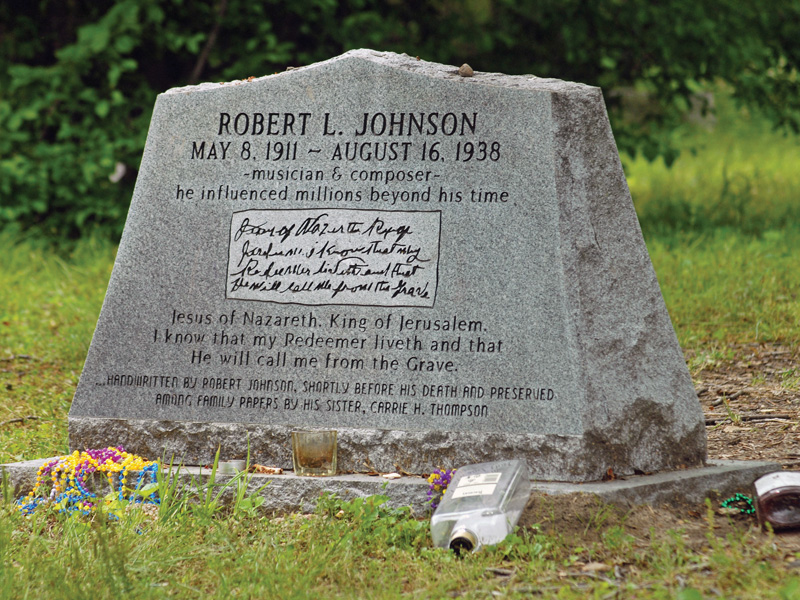 ROBERT L. JOHNSON
MAY 8, 1911 ~ AUGUST 16, 1938
-musician & composer-
he influenced millions beyond his time
Jesus of Nazareth, King of
Jerusalem, I know that my
Redeemer liveth and that
He will call me from the Grave
Jesus of Nazareth, King of Jerusalem,
I know that my Redeemer liveth and that
He will call me from the Grave.
...HANDWRITTEN BY ROBERT JOHNSON, SHORTLY BEFORE HIS DEATH AND PRESERVED
AMONG FAMILY PAPERS BY HIS SISTER, CARRIE H. THOMPSON